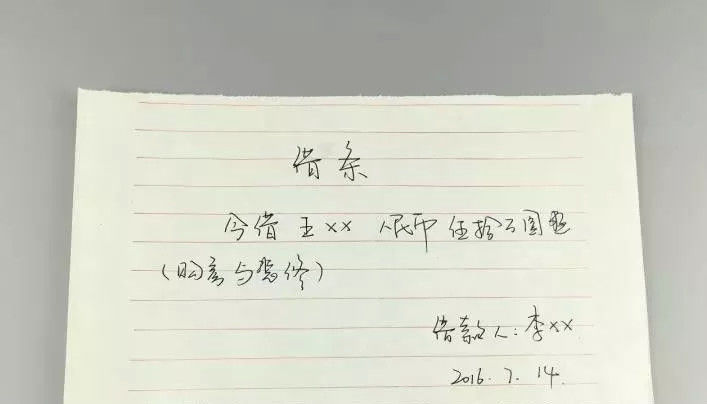 借条
今借 王×× 人民币 伍拾万圆整
借款人:李××
2016.7.14.